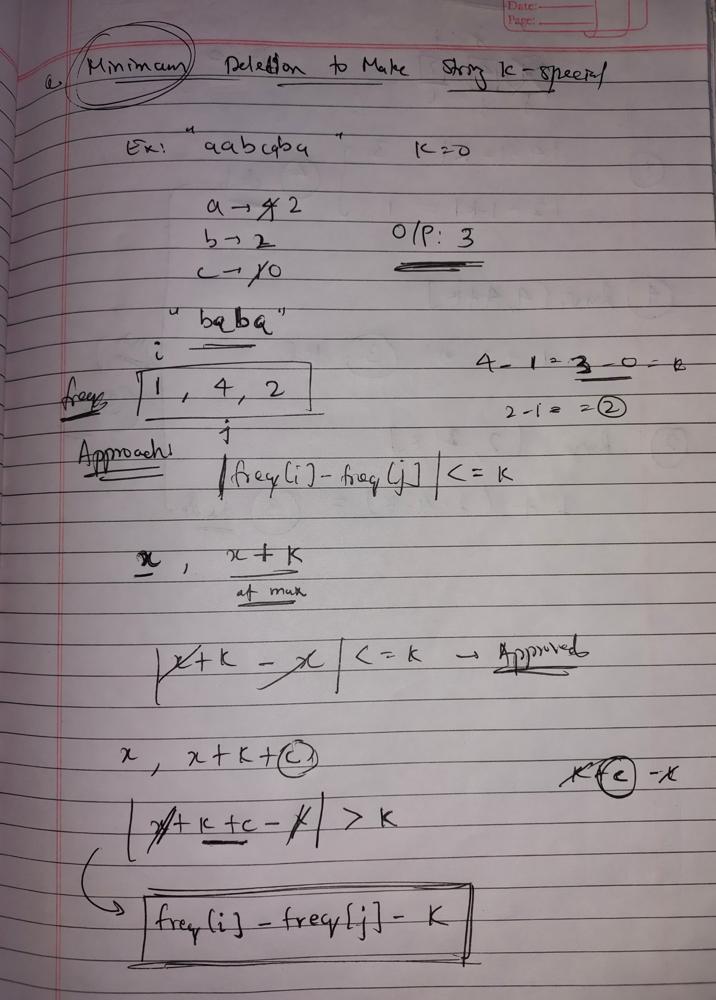 Date:
Page:
Q. Minimum Deletion to Make String K-special
Ex: "aabcaba" K=0
a → 4 2
b → 2
c → 1 0
O/P: 3
"baba"
i
freq 1, 4, 2
j
4 - 1 = 3 - 0 = k
2 - 1 = = 2
Approach:
|freq[i] - freq[j]| <= K
x, x + K
at max
|x + K - x| <= K → Approved
x, x + K + c
K + c - K
|x + K + c - x| > K
freq[i] - freq[j] - K